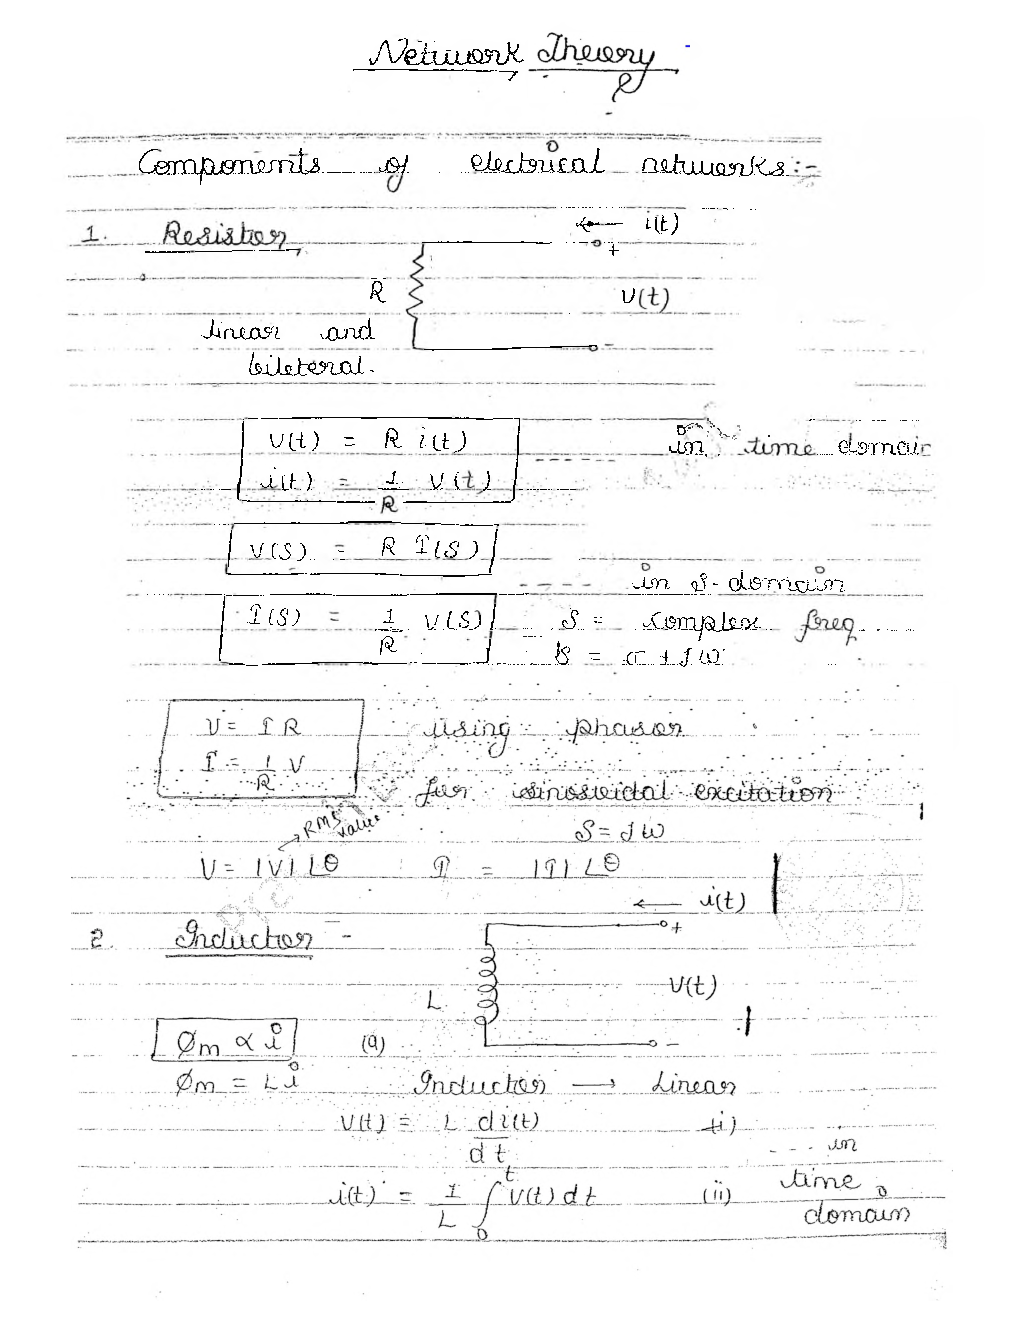 Network Theory
Components of electrical networks:-
i(t)
1. Resistor
+
R
V(t)
linear and
-
bileteral.
V(t) = R i(t)
i(t) = 1/R V(t)
---- in time domain
V(S) = R I(S)
---- in S-domain
I(S) = 1/R V(S)
S = complex freq.
S = σ + Jω
V = I R
using phasor
I = 1/R V
for sinosoidal excitation
RMS value
S = Jω
V = |V| ∠θ I = |I| ∠θ
i(t)
2. Inductor -
+
V(t)
L
Øm ∝ i (a)
-
Øm = Li
Inductor → Linear
V(t) = L di(t)/dt (i)
--- in time domain
i(t) = 1/L ∫₀ᵗ V(t) dt (ii)